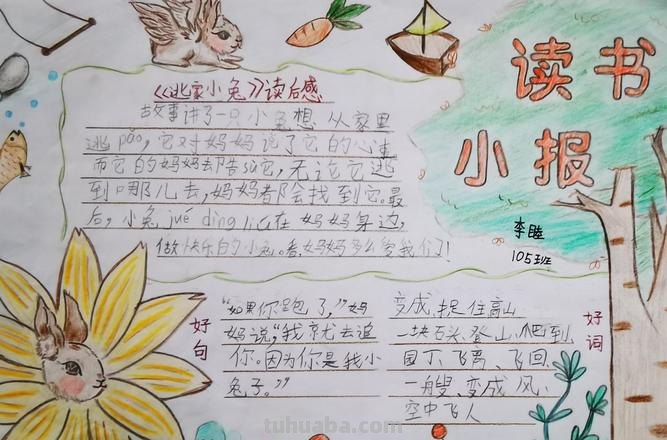 读书
小报
李睦
105班
《逃家小兔》读后感
故事讲了一只小兔想从家里
逃pǎo,它对妈妈说了它的心事
而它的妈妈却告sù它,无论它逃
到哪儿去,妈妈都会找到它。最
后,小兔jué dìng 在妈妈身边,
做快乐的小兔。看,妈妈多么爱我们!
好句
“如果你跑了,”妈
妈说,“我就去追
你。因为你是我小
兔子。”
好词
变成、捉住、高山
一块石头、登山、爬到、
园丁、飞离、飞回、
一艘、变成、风、
空中飞人
tuhuaba.com